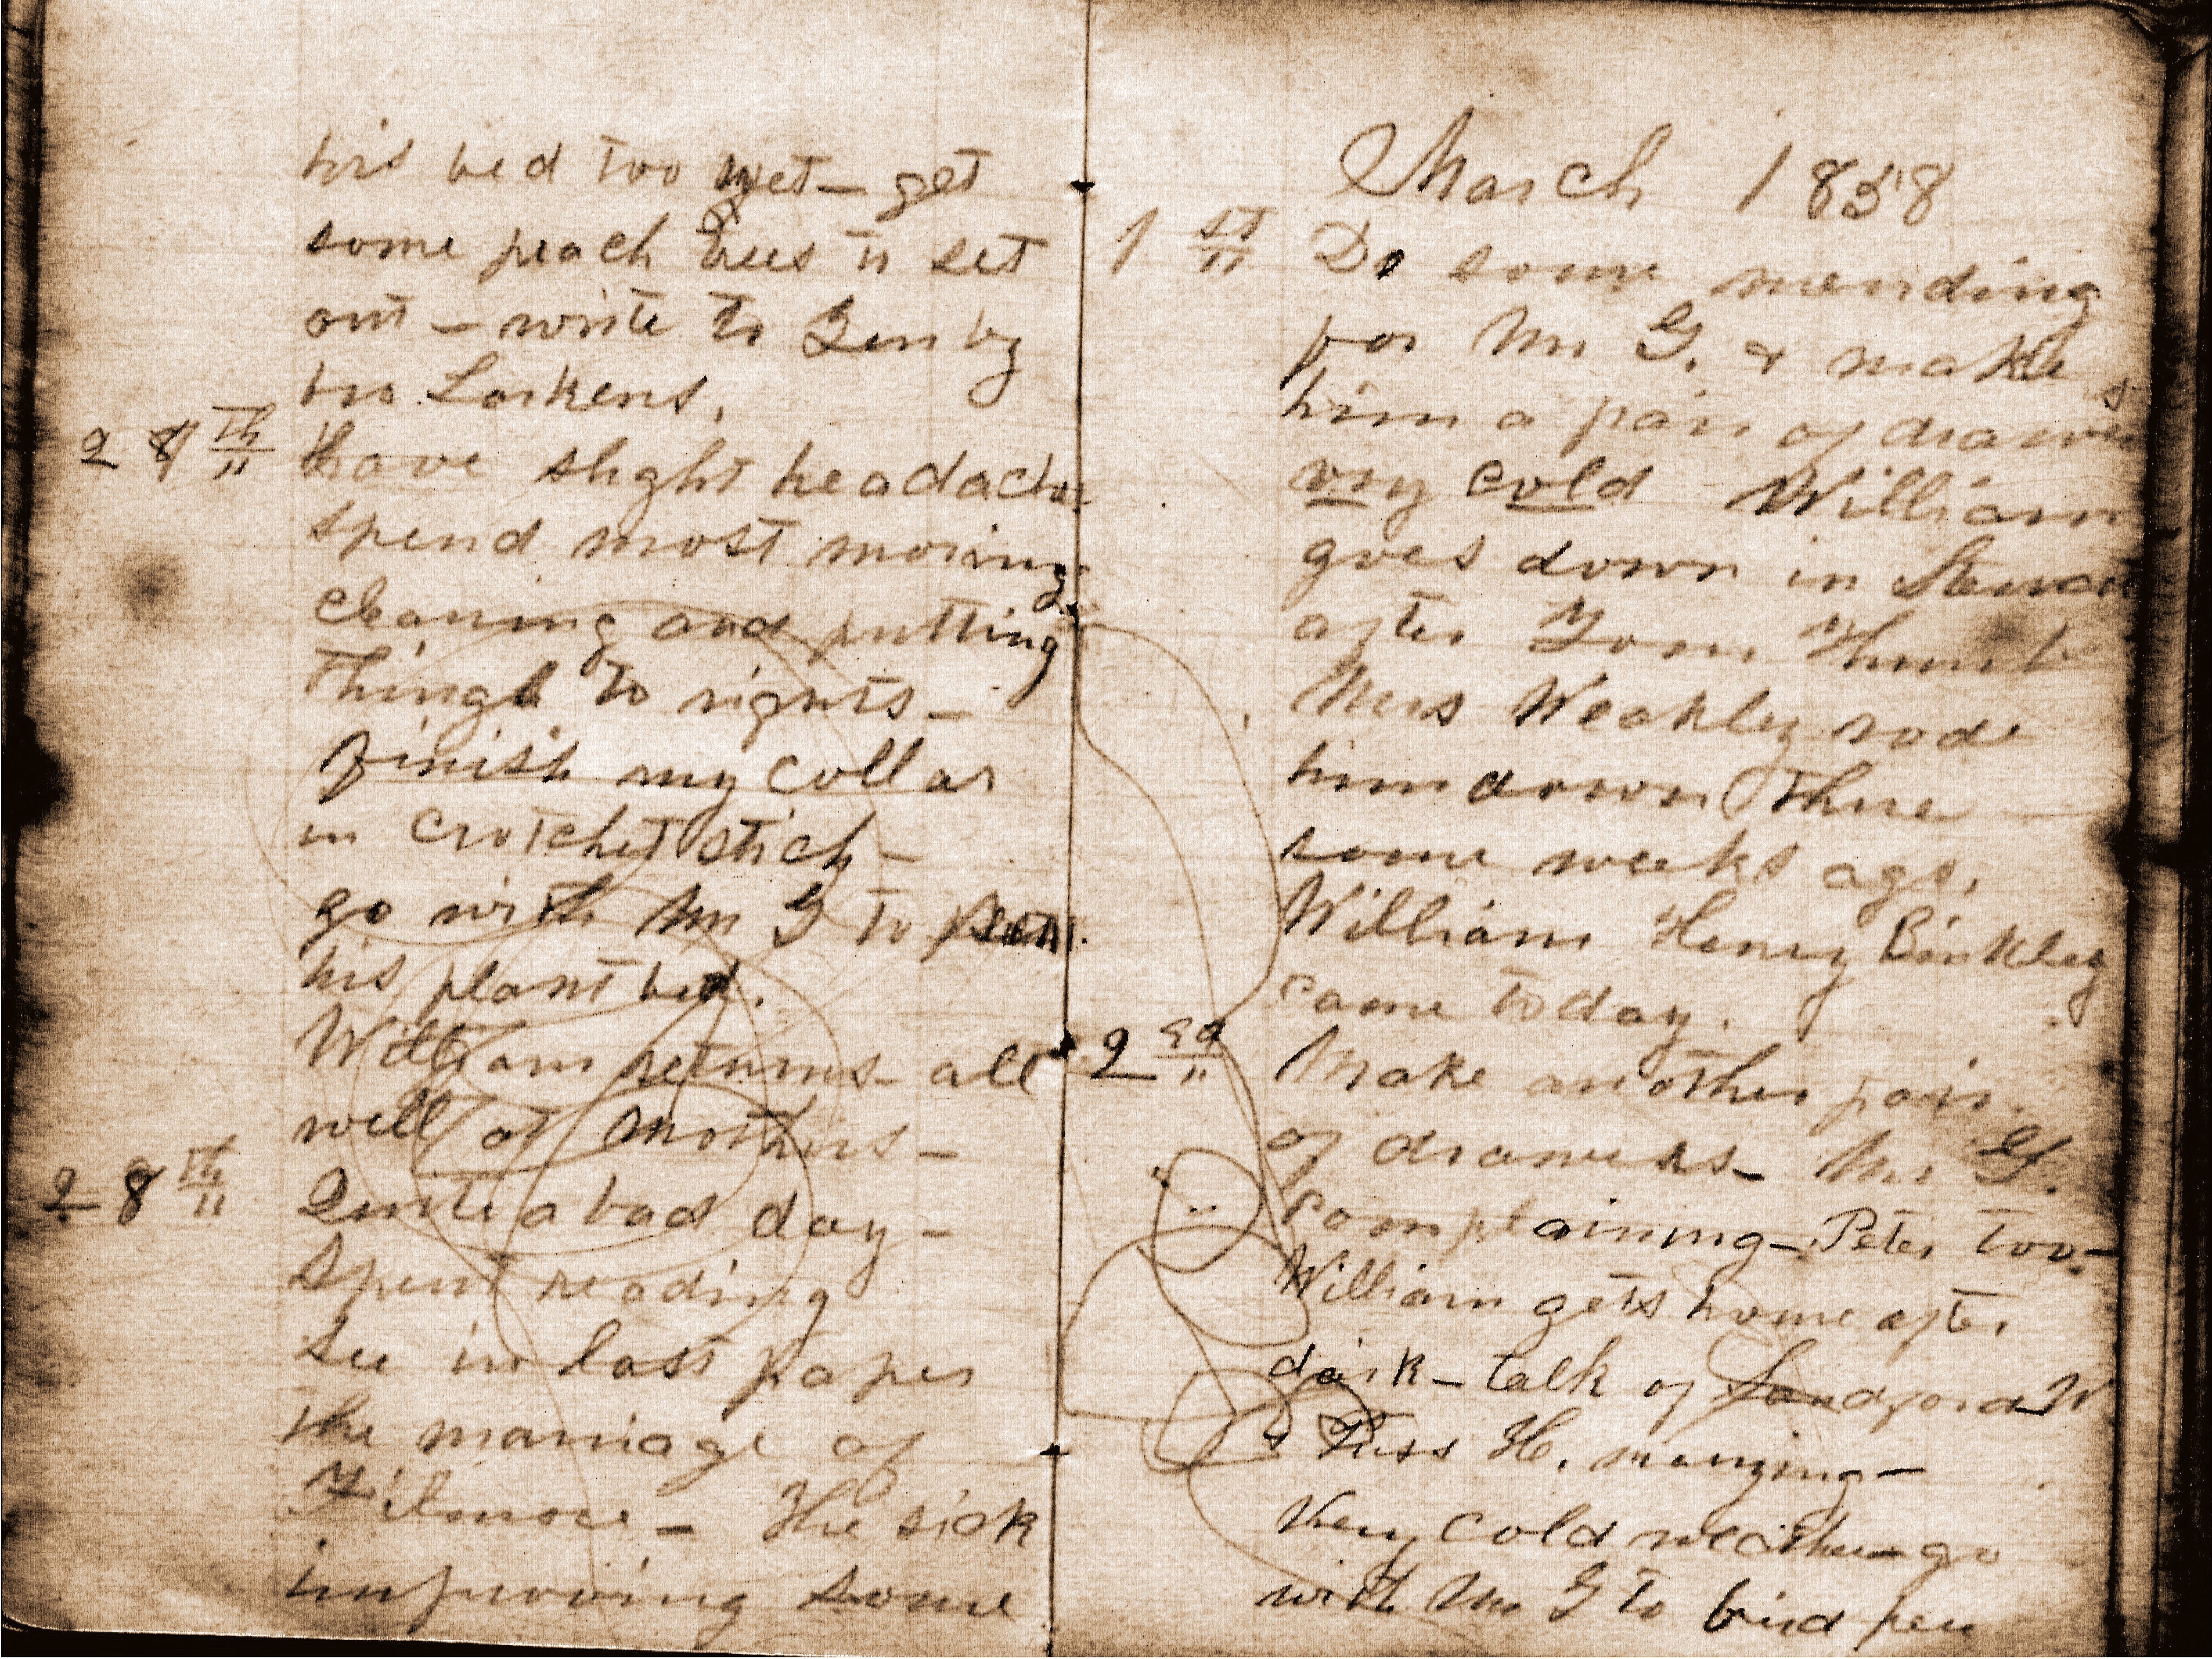 his bed too wet — get
some peach trees to set
out — write to
bro Larkens.
27th Have slight headache
spend most morning
cleaning and putting
things to rights —
finish my collar
in crotchet stich —
go with Mr G to sow
his plant bed.
William returns — all
well at mothers —
28th Quite a bad day —
Spent reading
See in last paper
the marriage of
Filmore — The sick
improving some
March 1858
1st Do some mending
for Mr G. & make
him a pair of drawers
very cold William
goes down in
after Tom Thumb
Mrs Weakley rode
him down there
some weeks ago.
William Henry Binkley
came today.
2ed Make another pair
of drawers — Mr G.
complaining — Peter too —
William gets home after
dark — talk of Sandford W
& Puss H. marrying —
Very cold weather — go
with Mr G to bird pen